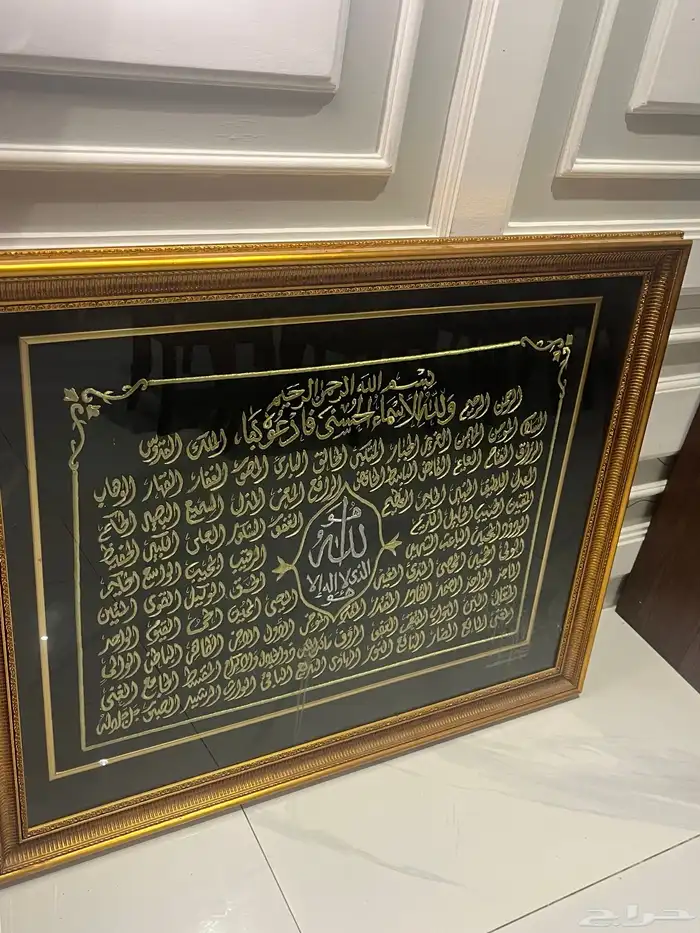 بسم الله الرحمن الرحيم
ولله الأسماء الحسنى فادعوه بها
الرحمن الرحيم الملك القدوس
السلام المؤمن المهيمن العزيز الجبار المتكبر الخالق البارئ المصور الغفار القهار الوهاب
الرزاق الفتاح العليم القابض الباسط الخافض الرافع المعز المذل السميع البصير الحكم
العدل اللطيف الخبير الحليم العظيم الغفور الشكور العلي الكبير الحفيظ
المقيت الحسيب الجليل الكريم الرقيب المجيب الواسع الحكيم
الودود المجيد الباعث الشهيد الحق الوكيل القوي المتين
الولي الحميد المحصي المبدئ المعيد المحيي المميت الحي القيوم الواجد
الماجد الواحد الصمد القادر المقتدر المقدم المؤخر الأول الآخر الظاهر الباطن الوالي
المتعالي البر التواب المنتقم العفو الرؤوف مالك الملك ذو الجلال والإكرام المقسط الجامع الغني
المغني المانع الضار النافع النور الهادي البديع الباقي الوارث الرشيد الصبور جل جلاله
هو
الله
الذي لا إله إلا
هو
حراج